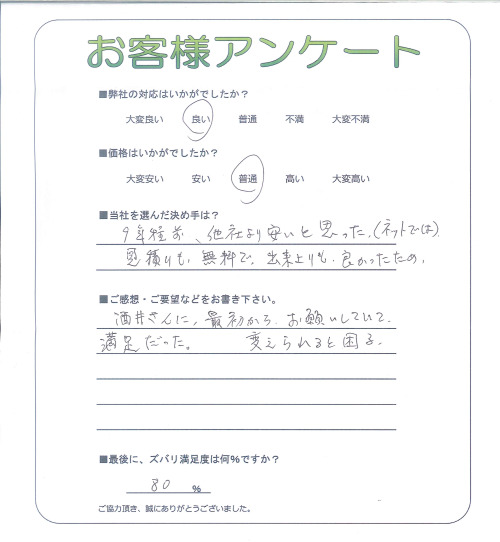 お客様アンケート
■弊社の対応はいかがでしたか？
大変良い 良い 普通 不満 大変不満
■価格はいかがでしたか？
大変安い 安い 普通 高い 大変高い
■当社を選んだ決め手は？
9年程前、他社より安いと思った。(ネットでは)
見積りも、無料で、出来上りも、良かったため、
■ご感想・ご要望などをお書き下さい。
酒井さんに、最初から、お願いしていて、
満足だった。 変えられると困る。
■最後に、ズバリ満足度は何％ですか？
80 ％
ご協力頂き、誠にありがとうございました。